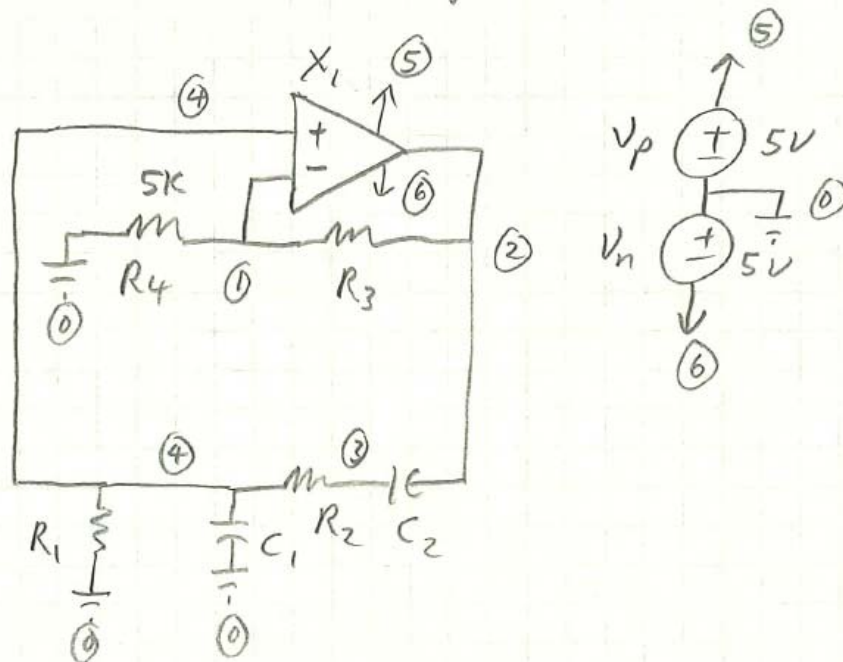 X1 ⑤
④
+
−
5K
⑥
R4 ① R3 ②
⓪
④ ③
R1 C1 R2 C2
⓪ ⓪
⑤
Vp + − 5V
⓪
Vn + − 5V
⑥